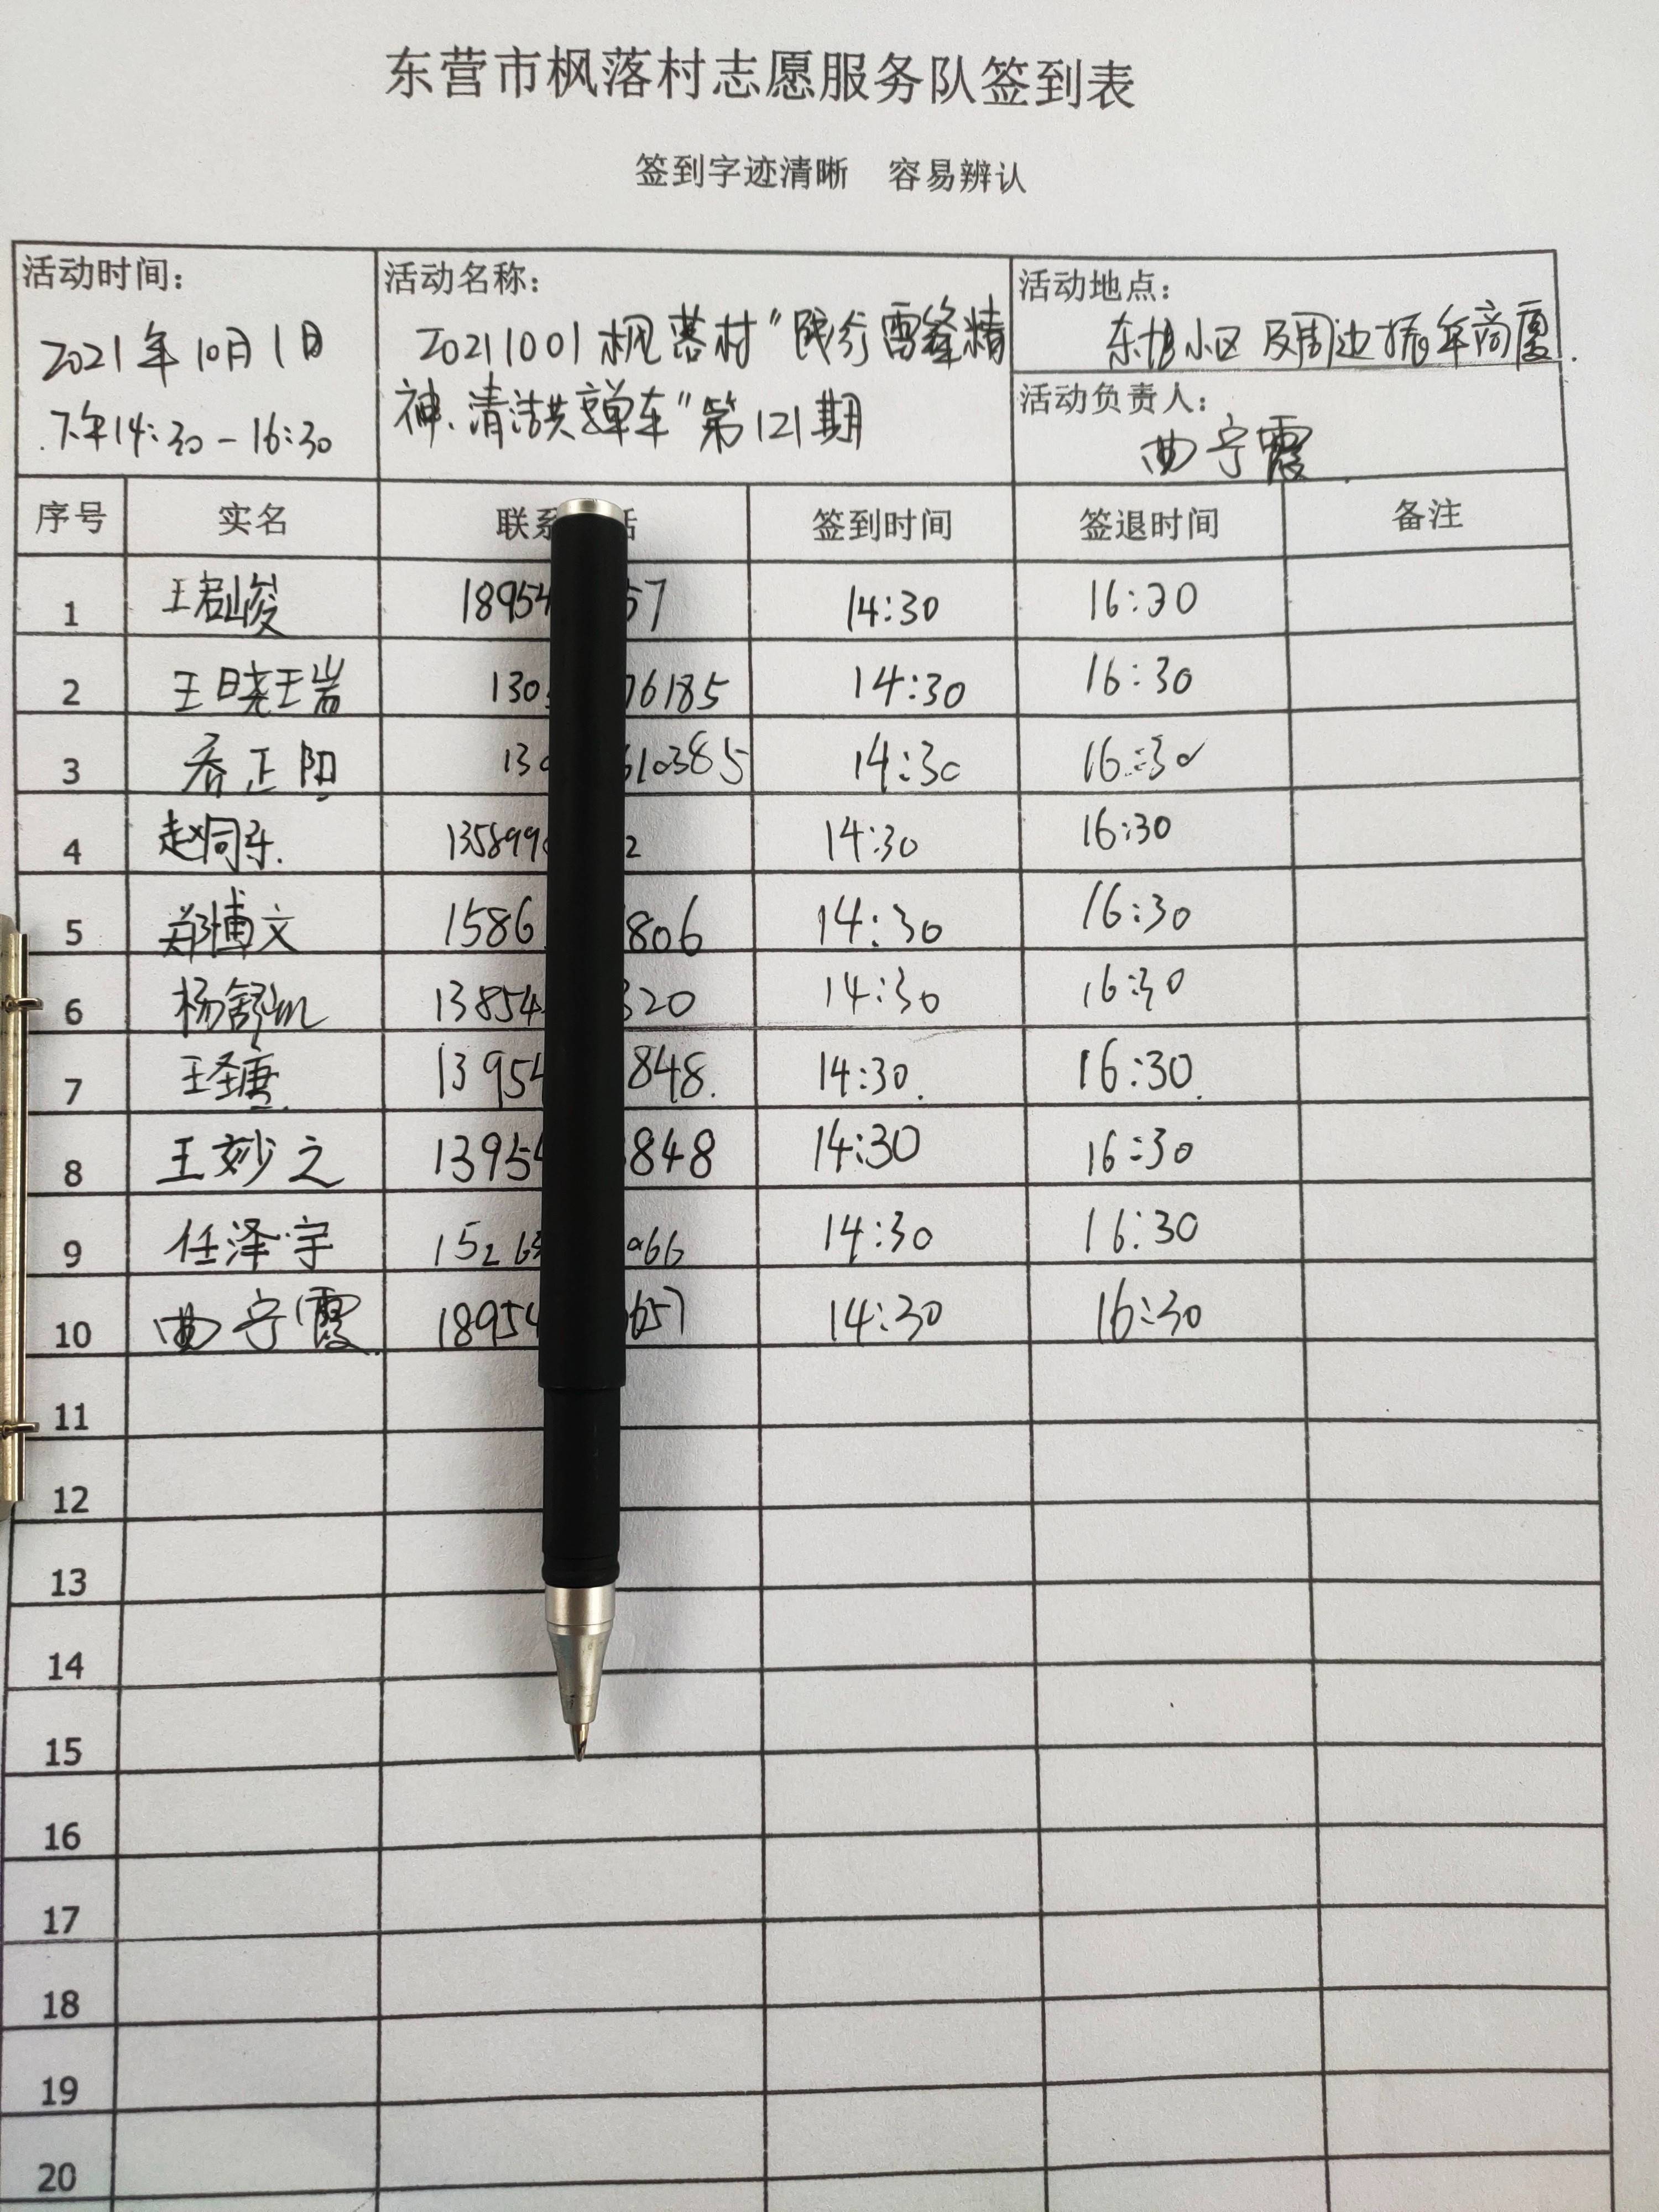 东营市枫落村志愿服务队签到表
签到字迹清晰 容易辨认
活动时间：
2021年10月1日
下午14:30-16:30
活动名称：
20211001枫落村"践行雷锋精
神、清洁共享单车"第121期
活动地点：
小区及周边振年商厦.
活动负责人：
曲宁霞
序号 实名 联系 话 签到时间 签退时间 备注
1 王君峻 18954 57 14:30 16:30
2 王晓 130 76185 14:30 16:30
3 乔正阳 130 610385 14:30 16:30
4 赵同乐. 135899 2 14:30 16:30
5 郑博文 1586 806 14:30 16:30
6 杨舒 13854 320 14:30 16:30
7 王 13954 848. 14:30. 16:30.
8 王妙之 13954 848 14:30 16:30
9 任泽宇 15265 066 14:30 16:30
10 曲宁霞. 18954 657 14:30 16:30
11
12
13
14
15
16
17
18
19
20